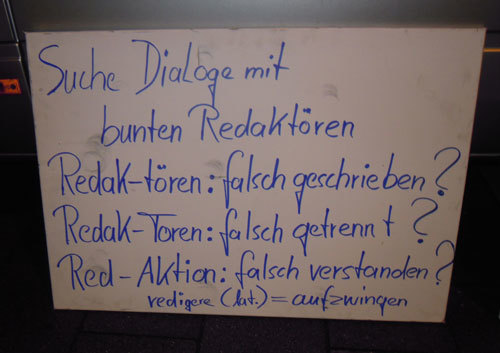 Suche Dialoge mit
bunten Redaktören
Redak-tören: falsch geschrieben?
Redak-Toren: falsch getrennt?
Red-Aktion: falsch verstanden?
redigere (lat.) = aufzwingen